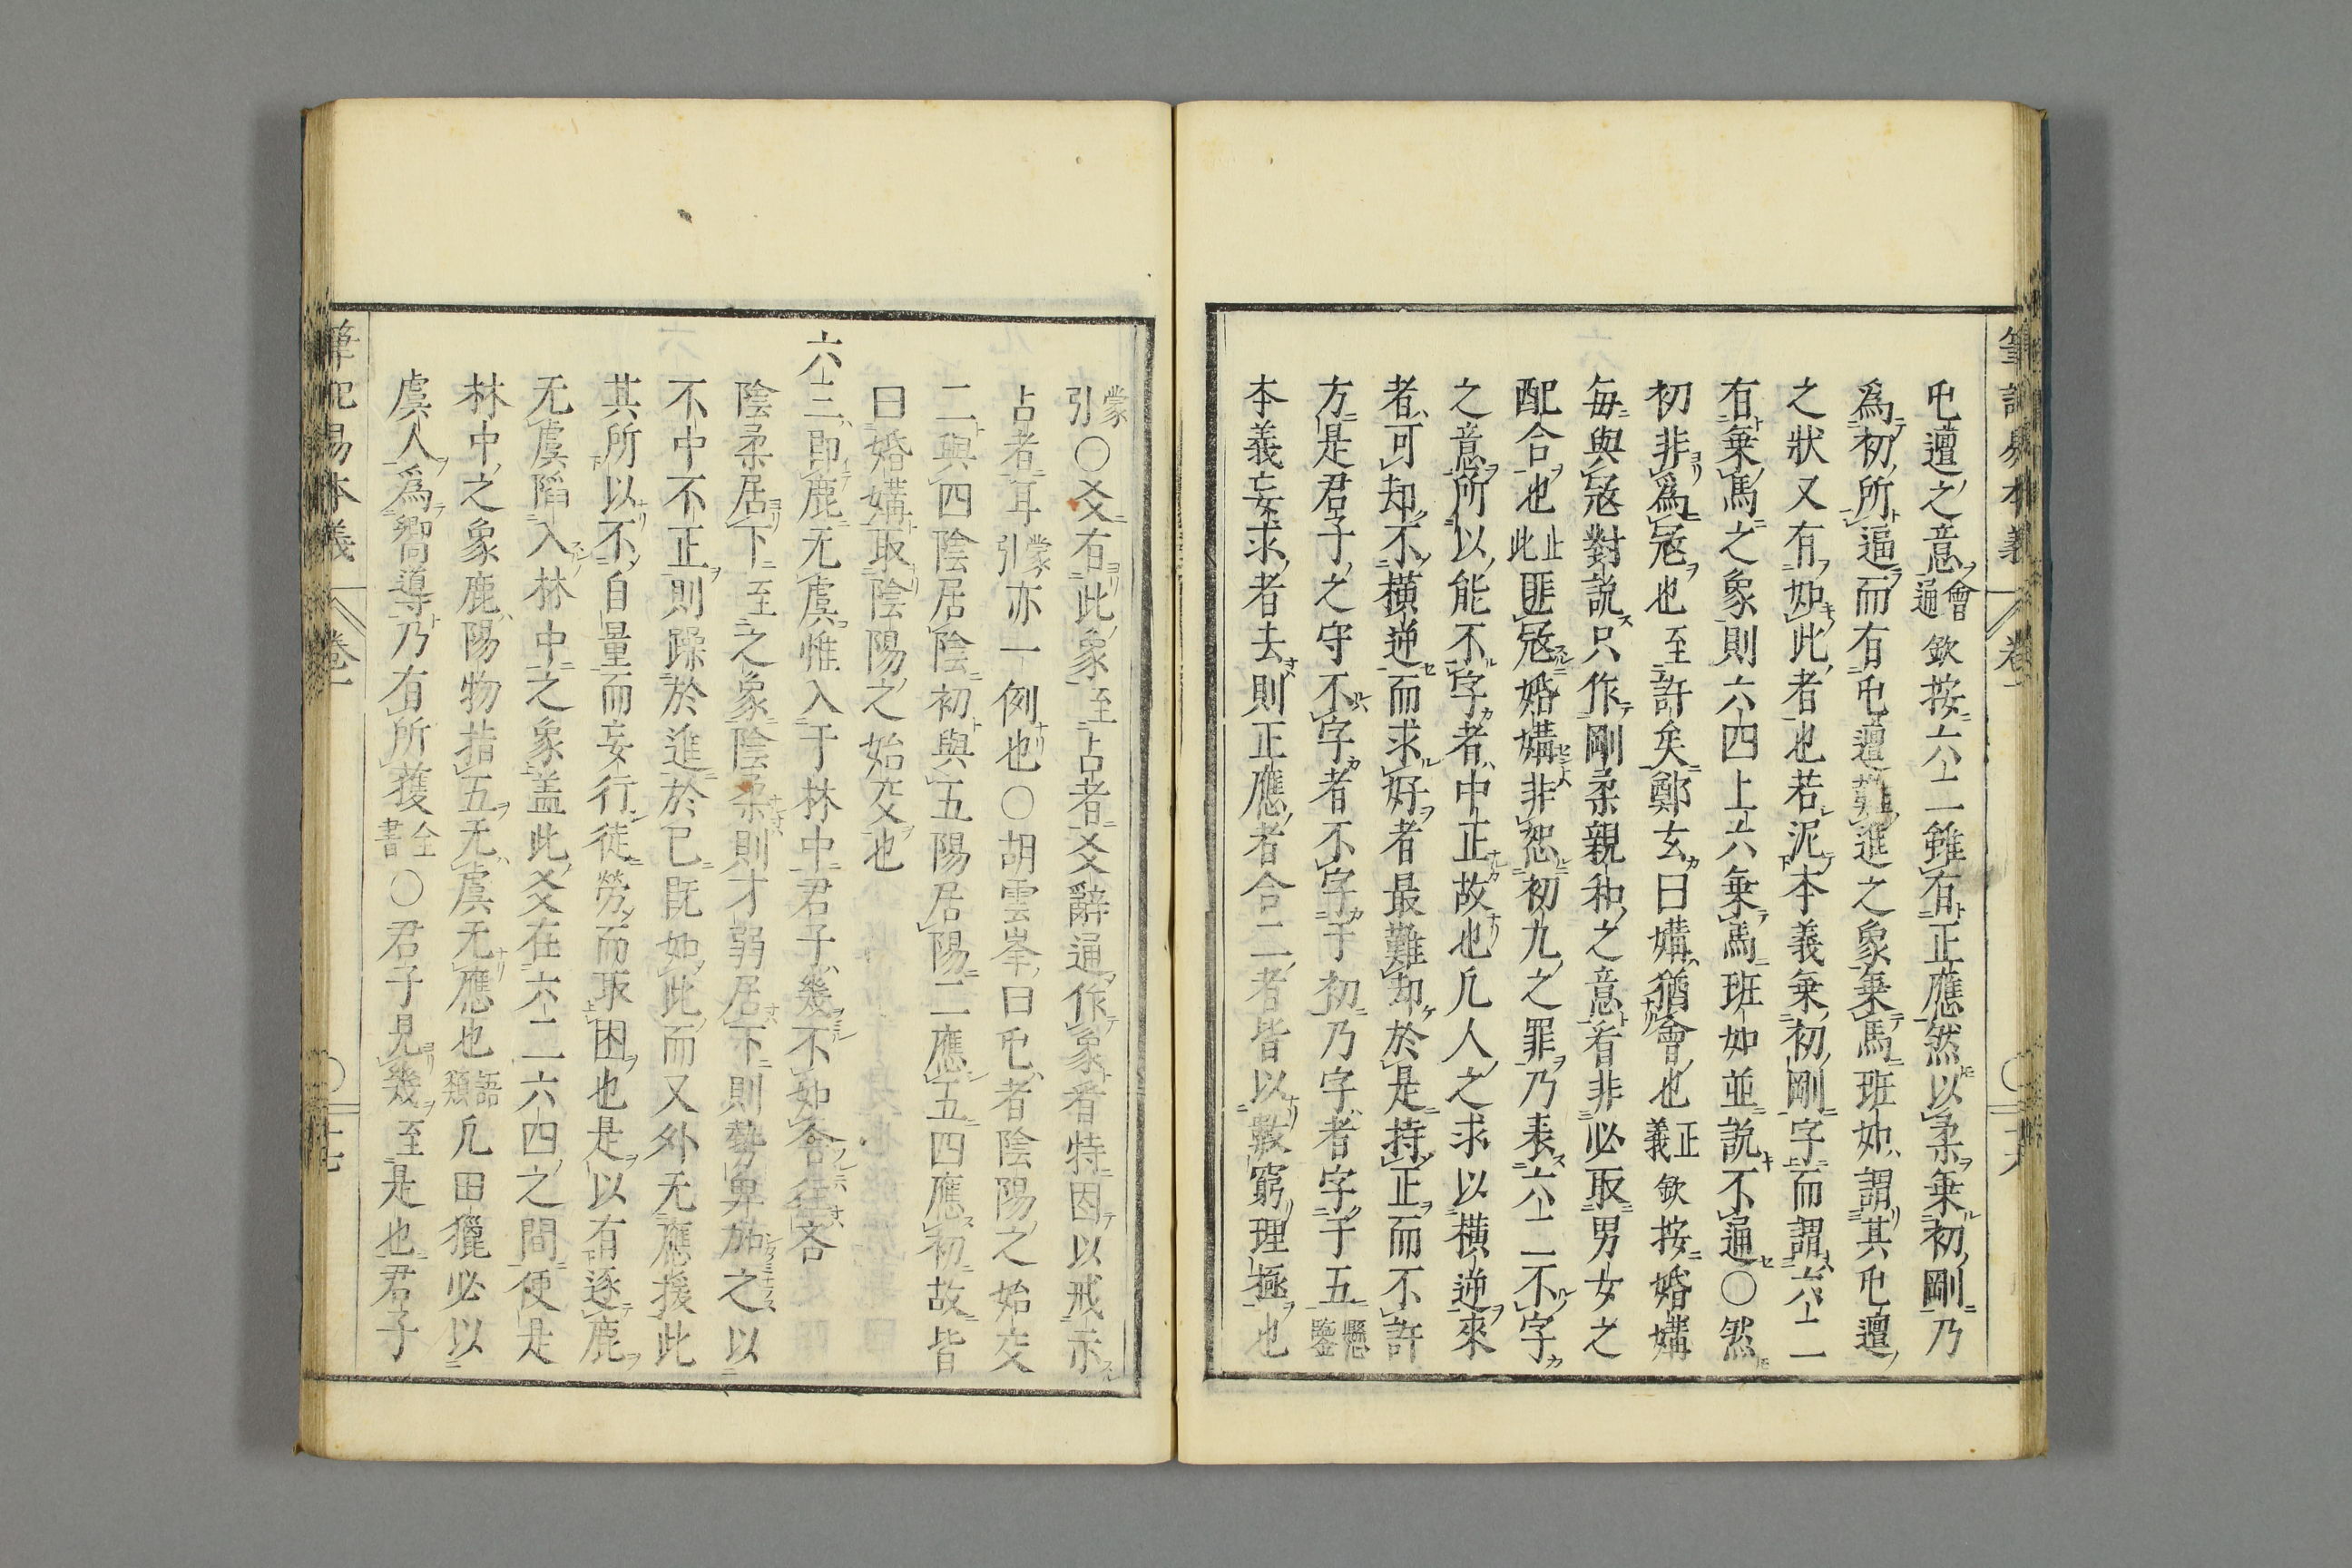 筆記易本義 卷一
屯邅之意會通欽按六二雖有正應然以柔乗初剛乃
爲初所逼而有屯邅難進之象乗馬班如謂其屯邅
之狀又有如此者也若泥本義乗初剛字而謂六二
有乗馬之象則六四上六乗馬班如並說不通○然
初非爲冦也至許矣鄭玄曰媾猶會也正義欽按婚媾
每與冦對說只作剛柔親和之意看非必取男女之
配合也止此匪冦婚媾非恕初九之罪乃表六二不字
之意所以能不字者中正故也凡人之求以橫逆來
者可却不橫逆而求好者最難却於是持正而不許
方是君子之守不字者不字于初乃字者字于五懸鑒
本義妄求者去則正應者合二者皆以數窮理極也
蒙引○爻有此象至占者爻辭通作象看特因以戒示
占者耳蒙引亦一例也○胡雲峯曰屯者陰陽之始交
二與四陰居陰初與五陽居陽二應五四應初故皆
曰婚媾取陰陽之始交也
六三即鹿无虞惟入于林中君子幾不如舍往吝
陰柔居下至之象陰柔則才弱居下則勢卑施之以
不中不正則躁於進於已既如此而又外无應援此
其所以不自量而妄行徒勞而取困也是以有逐鹿
无虞陷入林中之象盖此爻在六二六四之間便是
林中之象鹿陽物指五无虞无應也語類凡田獵必以
虞人爲嚮導乃有所獲全書○君子見幾至是也君子
筆記易本義 卷一